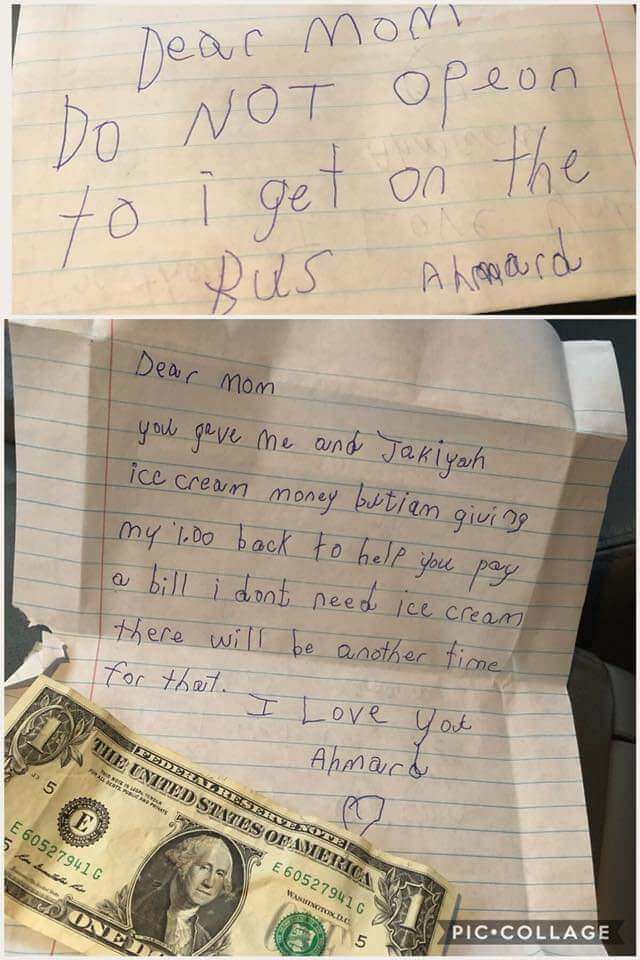 Dear Mom
Do NOT opeon
to i get on the
Bus Ahmard
Dear Mom
you gave me and Jakiyah
ice cream money butiam giving
my 1.00 back to help you pay
a bill i dont need ice cream
there will be another time
for that.
I Love you
Ahmard
FEDERAL RESERVE NOTE
THE UNITED STATES OF AMERICA
THIS NOTE IS LEGAL TENDER
FOR ALL DEBTS, PUBLIC AND PRIVATE
1
5
E
E 60527941 G
5
E 60527941 G
WASHINGTON, D.C.
1
5
ONE
PIC•COLLAGE